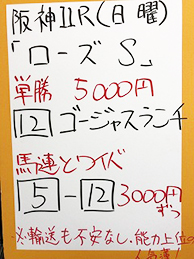 阪神11R(日曜)
「ローズS」
単勝 5000円
12 ゴージャスランチ
馬連とワイド
5-12 3000円
ずつ
※輸送も不安なし、能力上位の